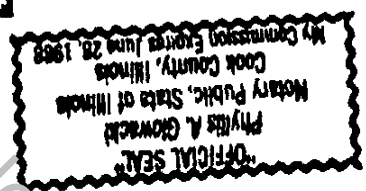 "OFFICIAL SEAL"
Phyllis A. Glowacki
Notary Public, State of Illinois
Cook County, Illinois
My Commission Expires June 28, 1989